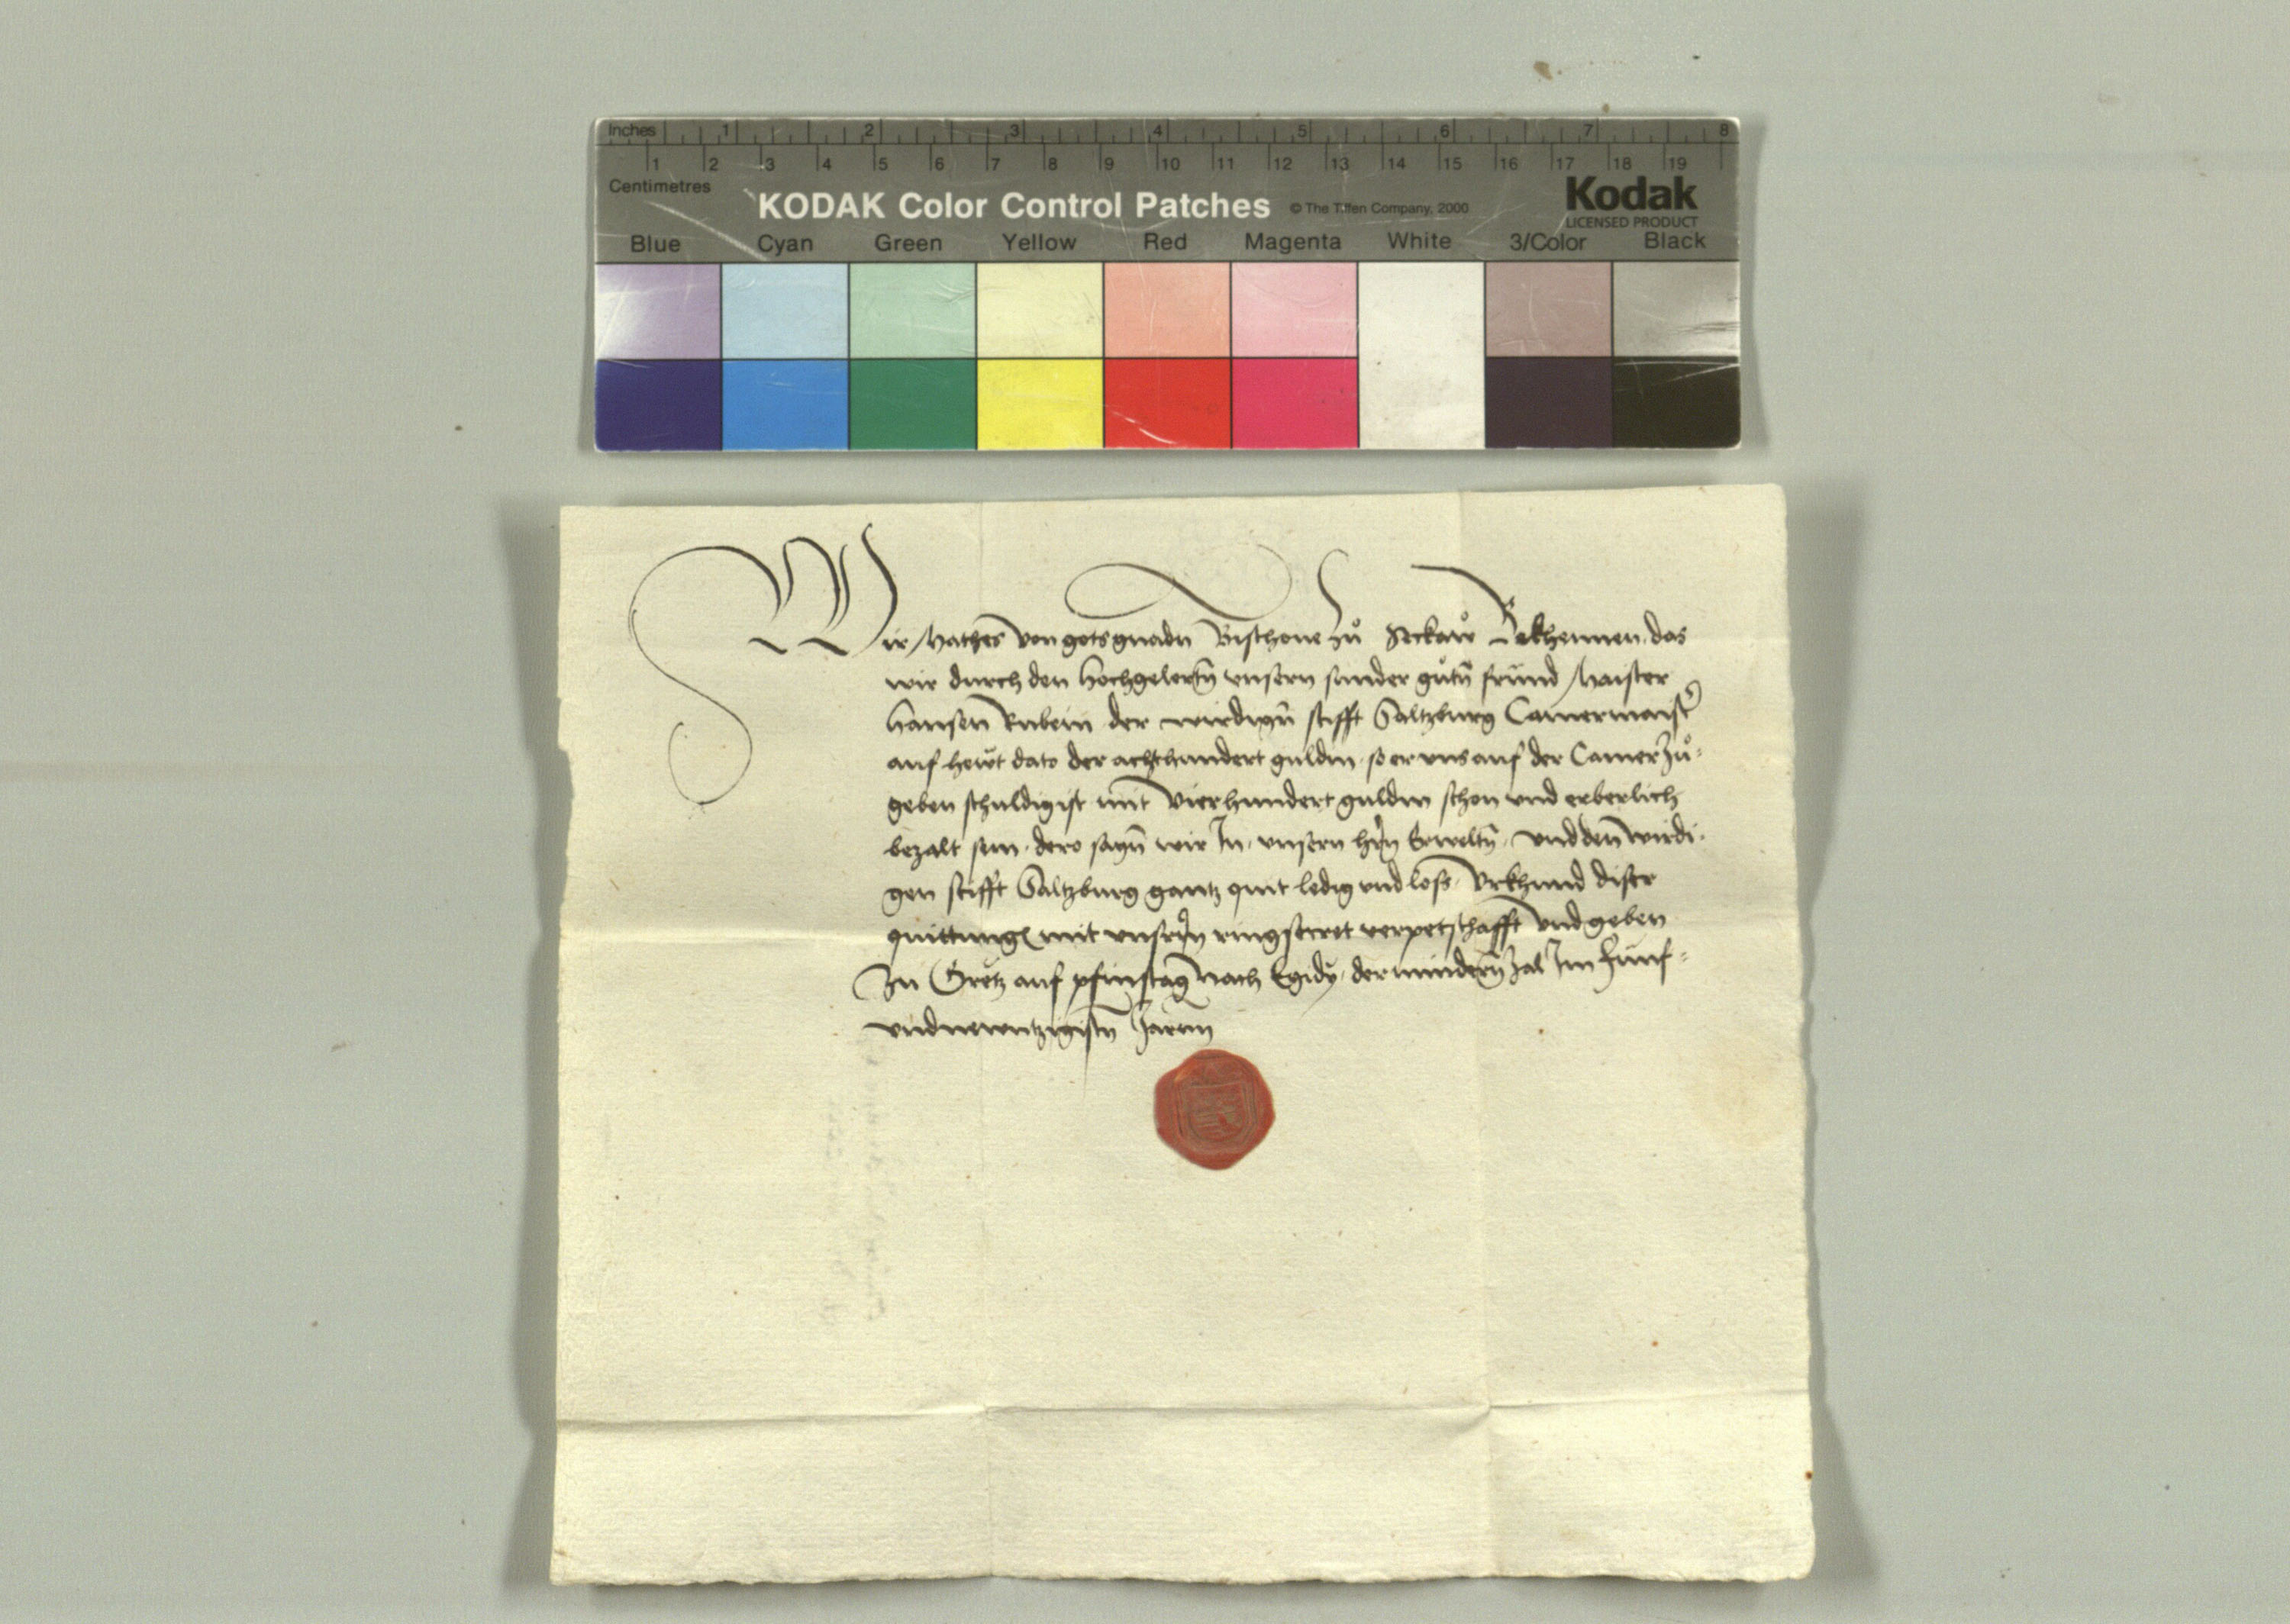 Inches 1 2 3 4 5 6 7 8
1 2 3 4 5 6 7 8 9 10 11 12 13 14 15 16 17 18 19
Centimetres
KODAK Color Control Patches © The Tiffen Company, 2000 Kodak
LICENSED PRODUCT
Blue Cyan Green Yellow Red Magenta White 3/Color Black
Wir Mathes von gots gnadn Bischoue zů Seckaw Bekhennen das
wir durch den hochgelertn̄ vnsern sunder gůtn̄ frund Maister
Hansen Rubein der wirdign̄ stifft Saltzburg Camermaist
auf hewt dato der achthundert guldin so er vns auf der Camer zů
geben schuldig ist mit vierhundert guldin schon vnd erberlich
bezalt sein dero sagn̄ wir In vnsern hrn̄ Erweltn̄ vnd den wirdi
gen stifft Saltzburg gantz quit ledig vnd loss Vrkhund diser
quittung mit vnserm ringsecret verpetschafft vnd geben
Zu Gretz auf pfinstag nach Egidy der mindern̄ zal Im funf
vndnewntzigistn̄ Jaren